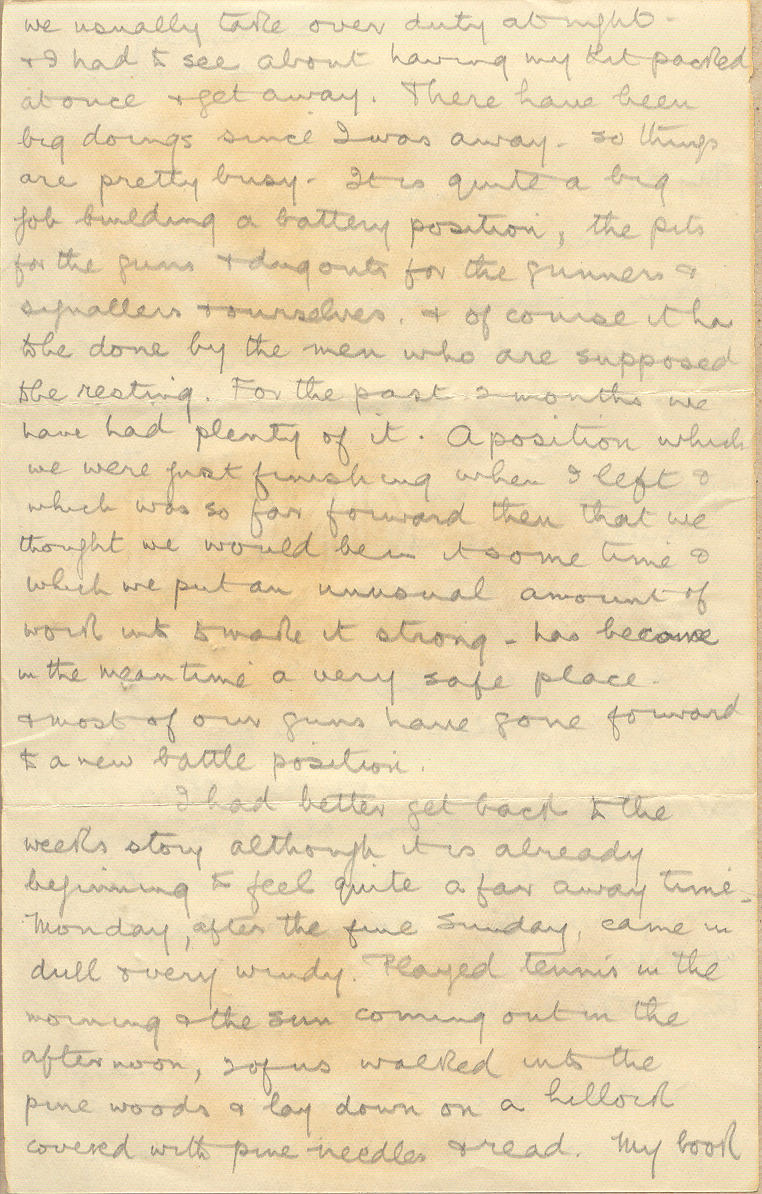 we usually take over duty at night -
+ I had to see about having my kit packed
at once + get away. There have been
big doings since I was away - so things
are pretty busy - It is quite a big
job building a battery position, the pits
for the guns + dugouts for the gunners &
signallers + ourselves. + of course it has
to be done by the men who are supposed
to be resting. For the past 2 months we
have had plenty of it. A position which
we were just finishing when I left &
which was so far forward then that we
thought we would be in it some time &
which we put an unusual amount of
work into to make it strong - has become
in the meantime a very safe place -
+ most of our guns have gone forward
to a new battle position.
I had better get back to the
weeks story although it is already
beginning to feel quite a far away time -
Monday, after the fine Sunday, came in
dull + very windy. Played tennis in the
morning & the sun coming out in the
afternoon, 2 of us walked into the
pine woods & lay down on a hillock
covered with pine needles + read. My book